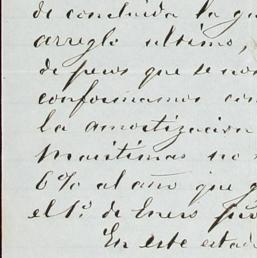 de concluida la gu
arreglo ultimo,
de pesos que se nos
conformamos con
la amortizacion
maritimas no
6% al año que g
el 1º de Enero
En este estado